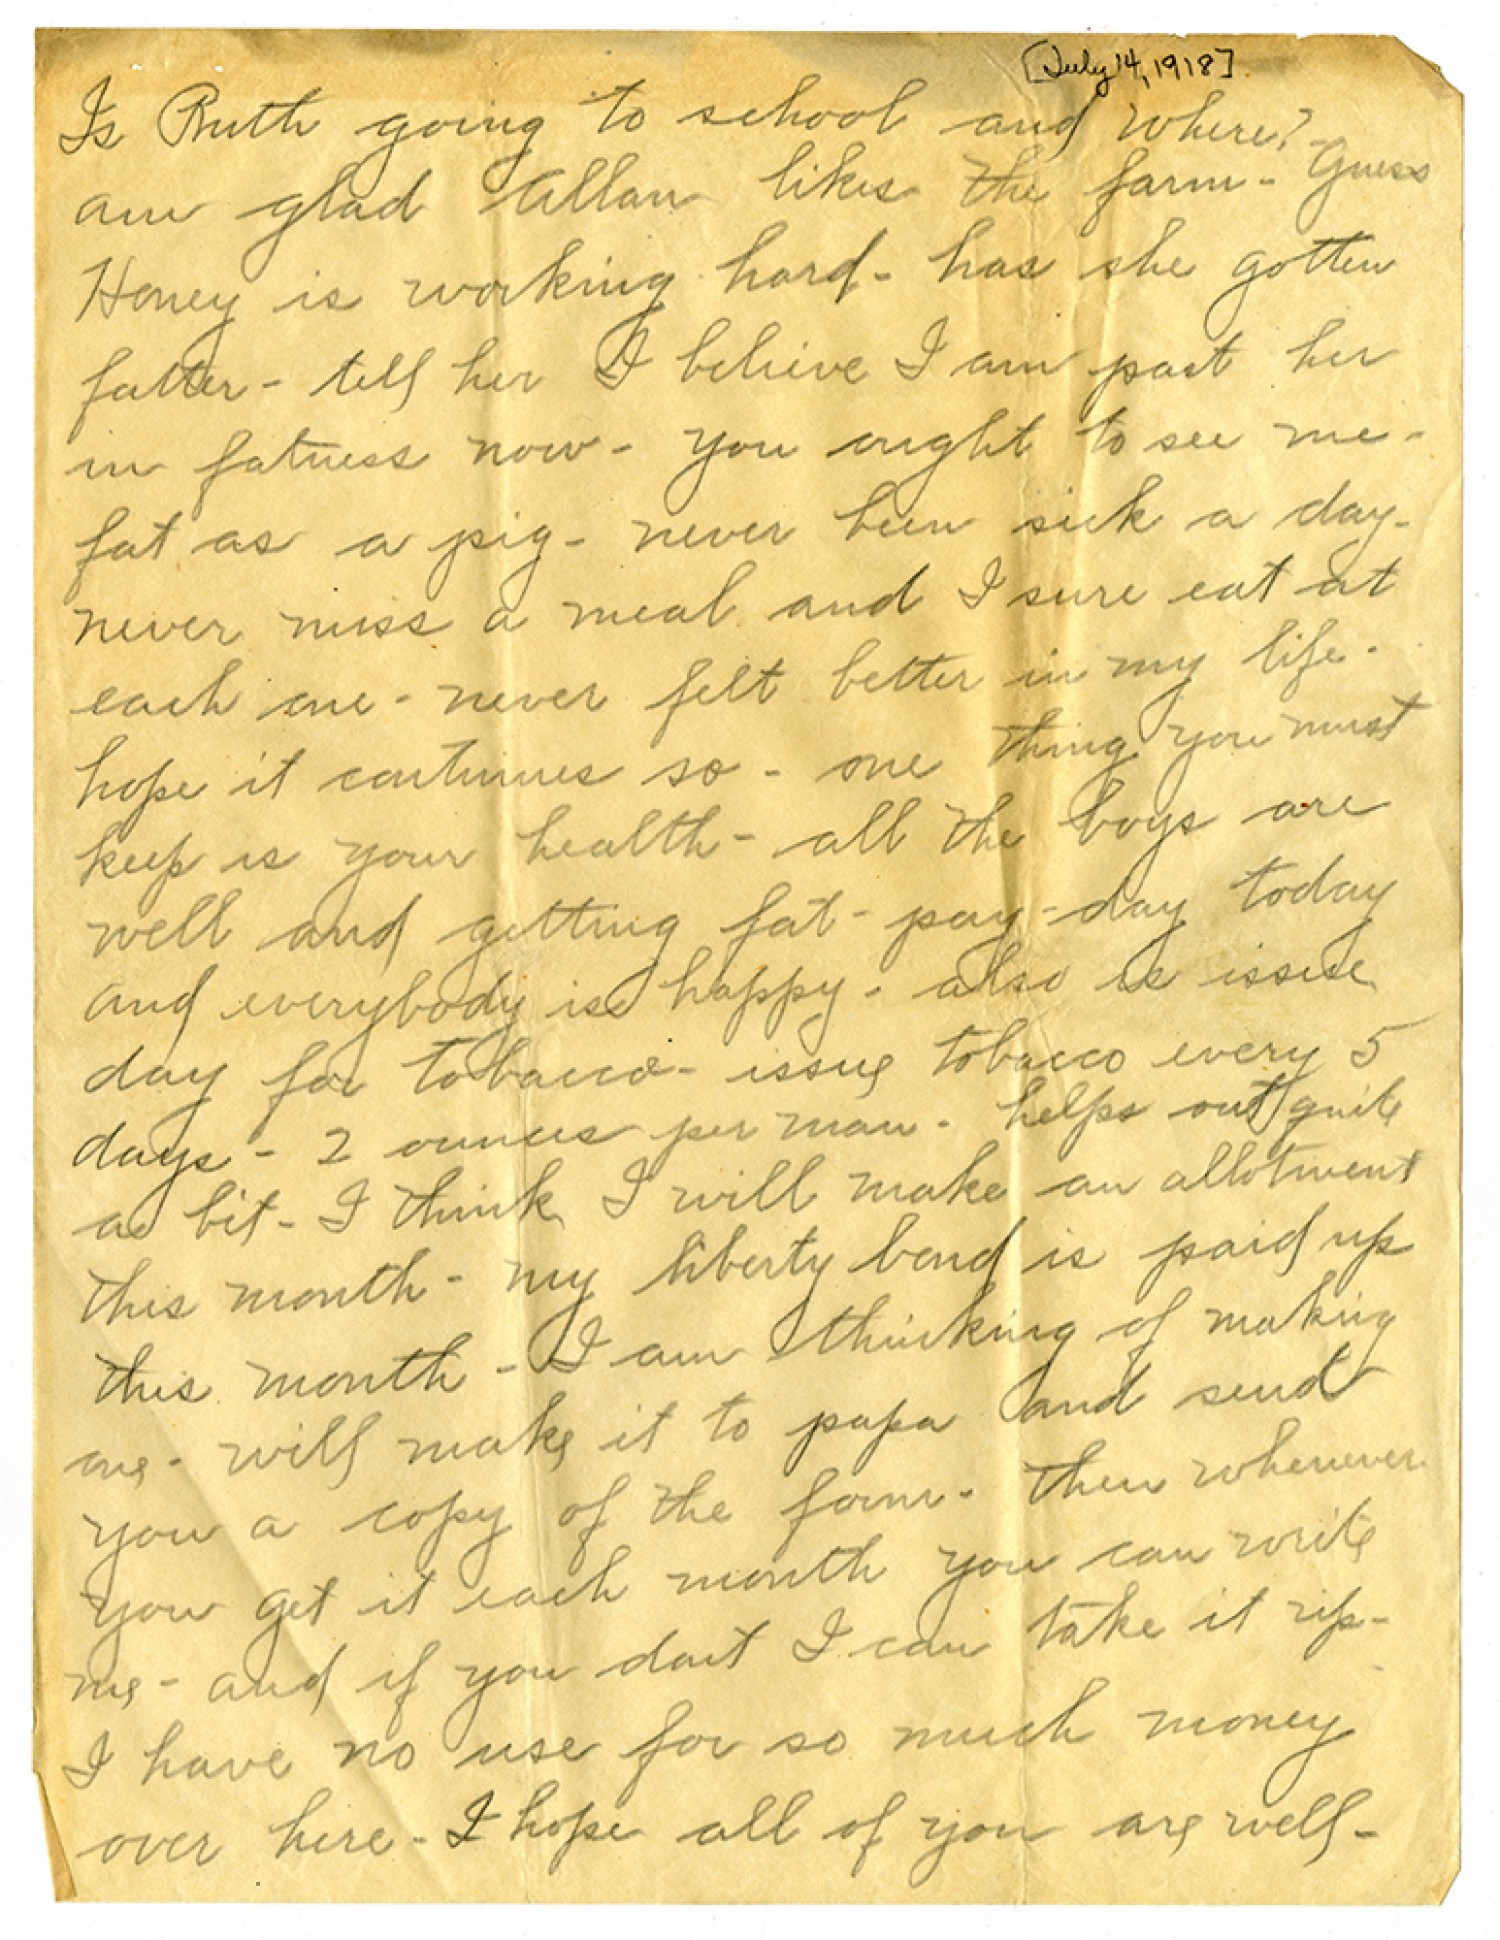 [July 14, 1918]
Is Ruth going to school and where?
am glad Allan likes the farm - Guess
Honey is working hard - has she gotten
fatter - tell her I believe I am past her
in fatness now - you ought to see me -
fat as a pig - never been sick a day -
never miss a meal and I sure eat at
each one - never felt better in my life -
hope it continues so - one thing you must
keep is your health - all the boys are
well and getting fat - pay-day today
and everybody is happy - also is issue
day for tobacco - issue tobacco every 5
days - 2 ounces per man - helps out quite
a bit - I think I will make an allotment
this month - my liberty bond is paid up
this month - I am thinking of making
one - will make it to papa and send
you a copy of the form - then whenever
you get it each month you can write
me - and if you dont I can take it up -
I have no use for so much money
over here - I hope all of you are well -